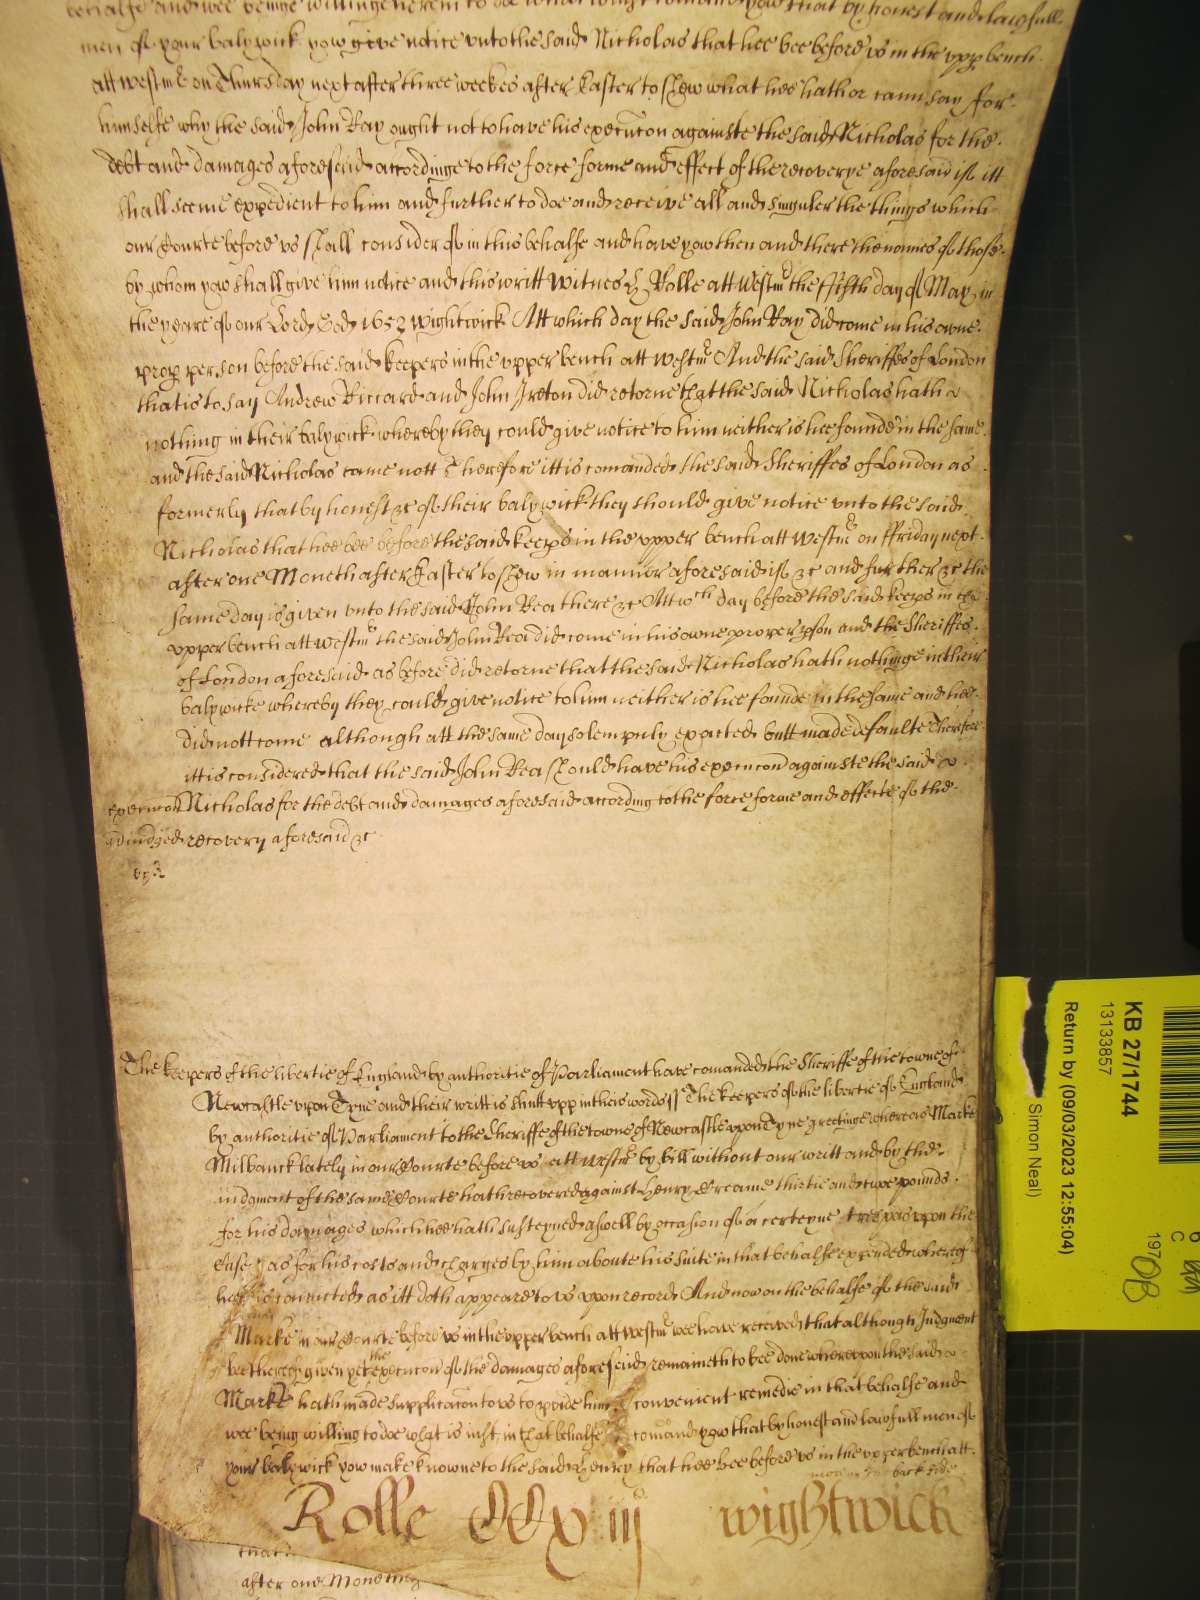 behalfe and wee beinge willinge herein to doe what is just comand yow that by honest and lawfull
men of your balywick yow give notice unto the said Nicholas that hee bee before us in the upp bench
att Westmr on Thursday next after three weekes after Easter to shew what hee hath or cann say for
himselfe why the said John Ray ought not to have his execucon againste the said Nicholas for the
debt and damages aforesaid accordinge to the force forme and effect of the recoverye aforesaid if itt
shall seeme expedient to him and further to doe and receive all and singuler the things which
our Courte before us shall consider of in this behalfe and have yow then and there the names of those
by whom yow shall give him notice and this writt Witnes H Rolle att Westmr the ffifth day of May in
the yeare of our Lord God 1652 Wightwick Att which day the said John Ray did come in his owne
prop person before the said keepers in the upper bench att Westmr And the said Sheriffes of London
that is to say Andrew Riccard and John Ireton did retorne that the said Nicholas hath
nothing in their balywick whereby they could give notice to him neither is hee founde in the same
and the said Nicholas came nott Therefore itt is comanded the said Sheriffes of London as
formerly that by honest &c of their balywick they should give notice unto the said
Nicholas that hee bee before the said keeps in the upper bench att Westmr on ffriday next
after one Moneth after Easter to shew in manner aforesaid if &c and further &c the
same day is given unto the said John Rea there &c Att wch day before the said keeps in the
upper bench att Westmr the said John Rea did come in his owne proper pson and the Sheriffes
of London aforesaid as before did retorne that the said Nicholas hath nothinge in their
balywicke whereby they could give notice to him neither is hee founde in the same and hee
did nott come although att the same day solempnly exacted butt made defaulte Therefore
itt is considered that the said John Rea should have his execucon againste the said
execucon Nicholas for the debt and damages aforesaid according to the force forme and effecte of the
recovery aforesaid &c
The keepers of the libertie of England by authoritie of Parliament have comanded the Sheriffe of the towne of
Newcastle upon Tyne and their writt is shutt upp in theis words // The keepers of the libertie of England
by authoritie of Parliament to the Sheriffe of the towne of Newcastle upon Tyne greetinge whereas Marke
Milbanck lately in our Courte before us att Westmr by bill without our writt and by the
iudgment of the same Courte hath recovered against Henry thirtie and twoe pounds
for his damages which hee hath susteyned aswell by occasion of a certeyne trespas upon the
Case as for his costs and charges by him aboute his suite in that behalfe expended whereof
hee is convicted as itt doth appeare to us upon record And now on the behalfe of the said
Marke in our Courte before us in the upper bench att Westmr wee have received that although Judgment
bee thereof given yet the execucon of the damages aforesaid remaineth to bee done whereupon the said
Marke hath made supplicacon to us to pvide him convenient remedie in that behalfe and
wee being willing to doe what is just in that behalfe comand yow that by honest and lawfull men of
your balywick yow make knowne to the said Henry that hee bee before us in the upper bench att
more on the back side
Rolle CCxiij Wightwick
that
after one Moneth
KB 27/1744
13133857
Return by (09/03/2023 12:55:04)
Simon Neal)